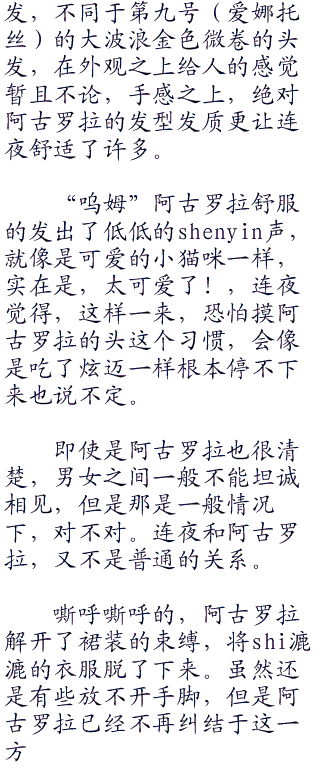 发，不同于第九号（爱娜托
丝）的大波浪金色微卷的头
发，在外观之上给人的感觉
暂且不论，手感之上，绝对
阿古罗拉的发型发质更让连
夜舒适了许多。
“呜姆”阿古罗拉舒服
的发出了低低的shenyin声，
就像是可爱的小猫咪一样，
实在是，太可爱了！，连夜
觉得，这样一来，恐怕摸阿
古罗拉的头这个习惯，会像
是吃了炫迈一样根本停不下
来也说不定。
即使是阿古罗拉也很清
楚，男女之间一般不能坦诚
相见，但是那是一般情况
下，对不对。连夜和阿古罗
拉，又不是普通的关系。
嘶呼嘶呼的，阿古罗拉
解开了裙装的束缚，将shi漉
漉的衣服脱了下来。虽然还
是有些放不开手脚，但是阿
古罗拉已经不再纠结于这一
方